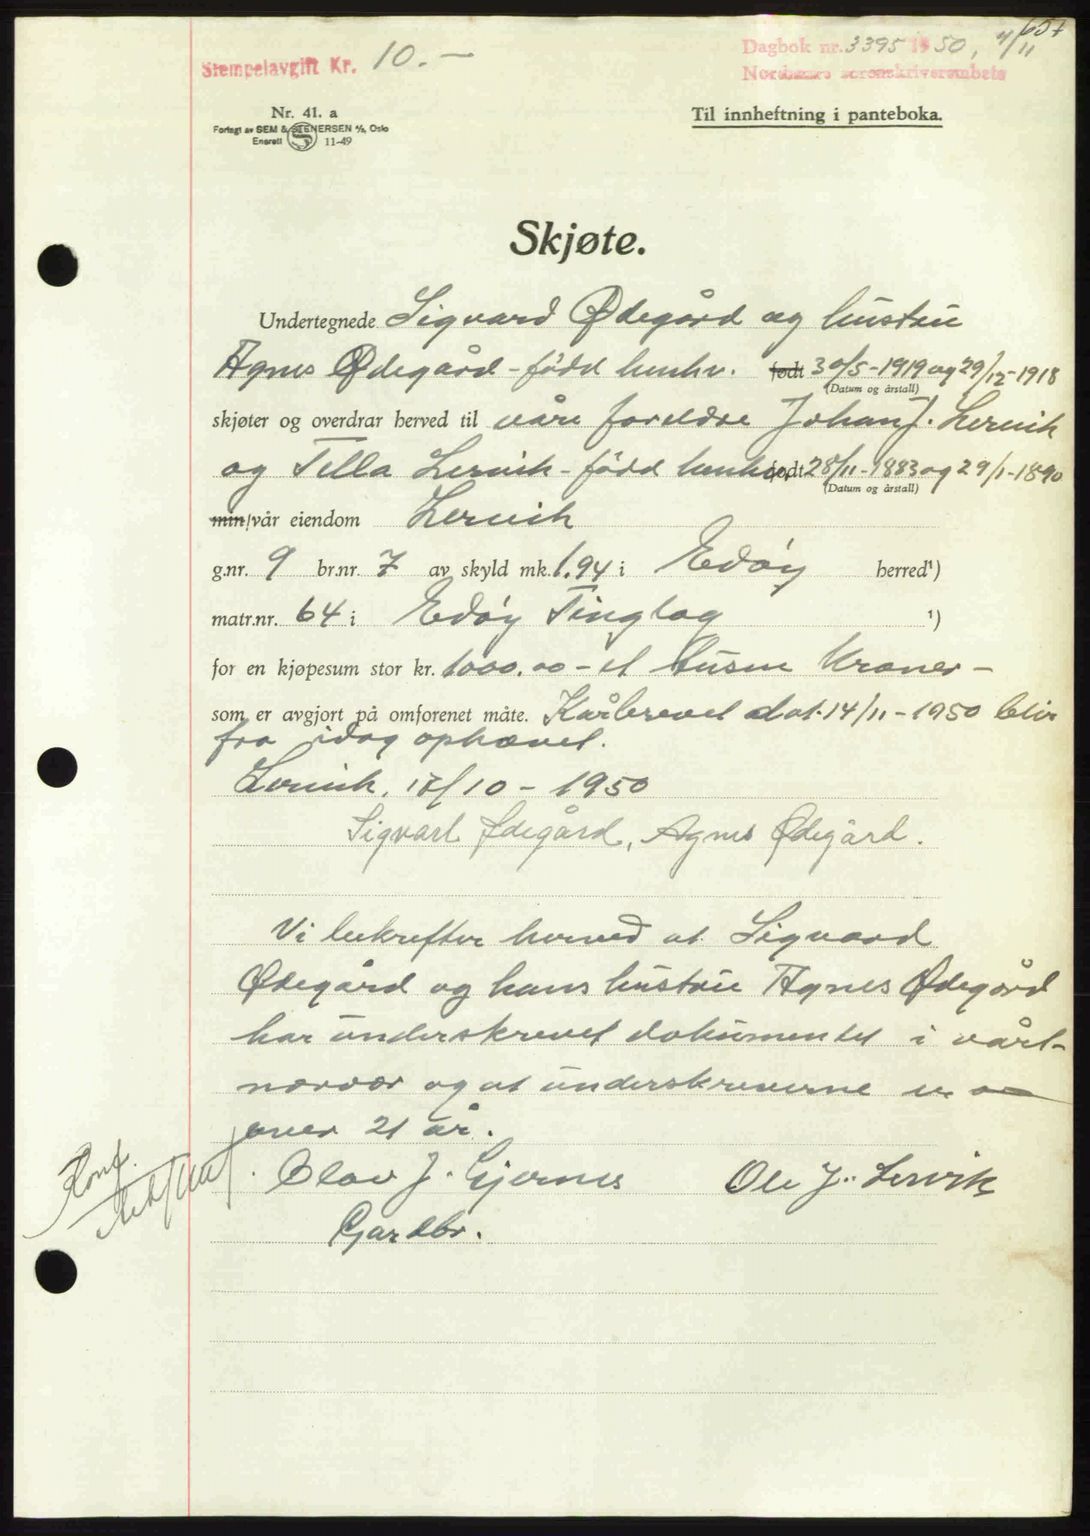 657
Stempelavgift Kr. 10.–
Dagbok nr. 3395 1950, 4/11
Nordmøre sorenskriverembete
Nr. 41. a
Forlagt av SEM & STENERSEN A/S, Oslo
Enerett 11-49
Til innheftning i panteboka.
Skjøte.
Undertegnede Sigvard Ødegård og hustru
Agnes Ødegård - född henhv. født 30/5-1919 og 29/12-1918
(Datum og årstall)
skjøter og overdrar herved til våre foreldre Johan J. Lervik
og Tella Lervik - född henhv. født 28/11-1883 og 29/1-1890
(Datum og årstall)
min/vår eiendom Lervik
g.nr. 9 br.nr. 7 av skyld mk. 1.94 i Edöy herred¹)
matr.nr. 64 i Edöy Tinglag ¹)
for en kjøpesum stor kr. 1000.00 - et tusen kroner -
som er avgjort på omforenet måte. Kårbrevet dat. 14/11-1950 blir
fra idag ophævet.
Lervik, 17/10 - 1950
Sigvart Ødegård, Agnes Ødegård.
Vi bekrefter herved at Sigvard
Ødegård og hans hustru Agnes Ødegård
har underskrevet dokumentet i vårt
nærvær og at underskriverne er
over 21 år.
Olav J. Gjernes Ole J. Lervik
Gardbr.
Konf.